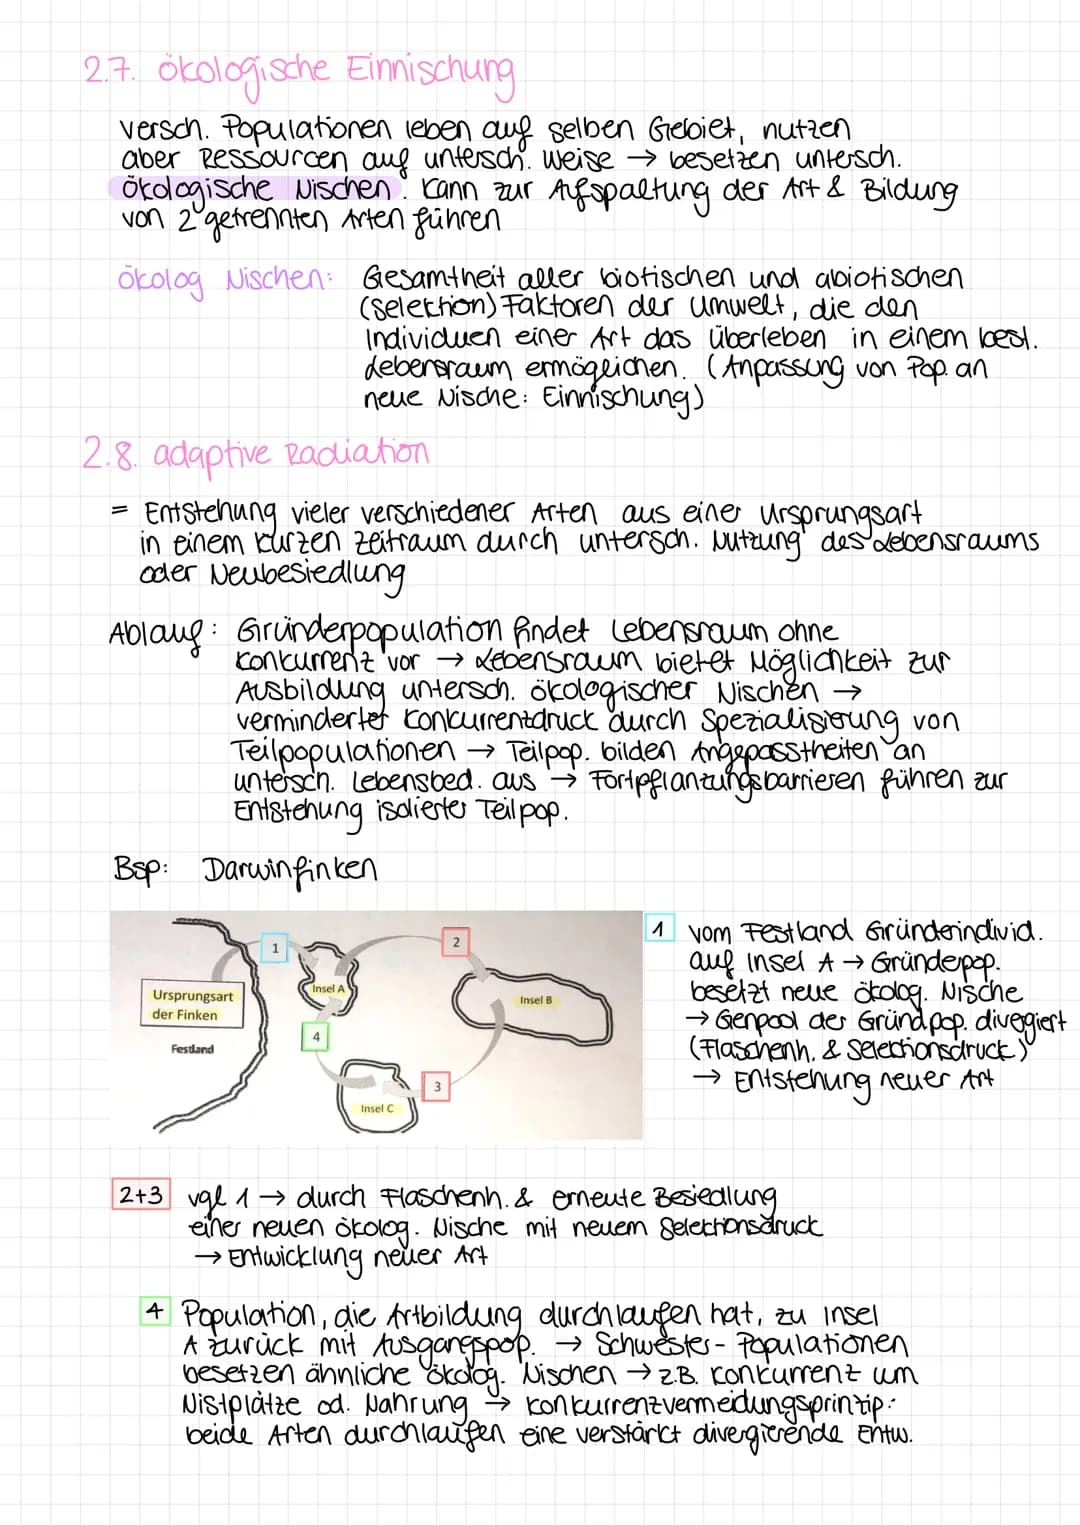 2.7. ökologische Einnischung
versch. Populationen leben auf selben Gebiet, nutzen
aber Ressourcen auf untersch. Weise → besetzen untersch.
ökologische Nischen. Kann zur Aufspaltung der Art & Bildung
von 2 getrennten Arten führen
ökolog Nischen: Gesamtheit aller biotischen und abiotischen
(Selektion) Faktoren der Umwelt, die den
Individuen einer Art das überleben in einem best.
Lebensraum ermöglichen. (Anpassung von Pop. an
neue Nische: Einnischung)
2.8. adaptive Radiation
= Entstehung vieler verschiedener Arten aus einer Ursprungsart
in einem kurzen Zeitraum durch untersch. Nutzung des Lebensraums
oder Neubesiedlung
Ablauf: Gründerpopulation findet Lebensraum ohne
Konkurrenz vor → Lebensraum bietet Möglichkeit zur
Ausbildung untersch. ökologischer Nischen →
verminderter Konkurrenzdruck durch Spezialisierung von
Teilpopulationen → Teilpop. bilden Angepasstheiten an
untersch. Lebensbed. aus → Fortpflanzungsbarrieren führen zur
Entstehung isolierter Teilpop.
Bsp: Darwinfinken
1
2
Insel A
Ursprungsart
der Finken
Insel B
4
Festland
3
Insel C
1 vom Festland Gründerindivid.
auf Insel A → Gründerpop.
besetzt neue ökolog. Nische
→ Genpool der Gründ.pop. divergiert
(Flaschenh. & Selectionsdruck)
→ Entstehung neuer Art
2+3 vgl 1 → durch Flaschenh. & erneute Besiedlung
einer neuen ökolog. Nische mit neuem Selektionsdruck
→ Entwicklung neuer Art
4 Population, die Artbildung durchlaufen hat, zu Insel
A zurück mit Ausgangspop. → Schwester-Populationen
besetzen ähnliche ökolog. Nischen → z.B. Konkurrenz um
Nistplätze od. Nahrung → Konkurrenzvermeidungsprinzip:
beide Arten durchlaufen eine verstärkt divergierende Entw.